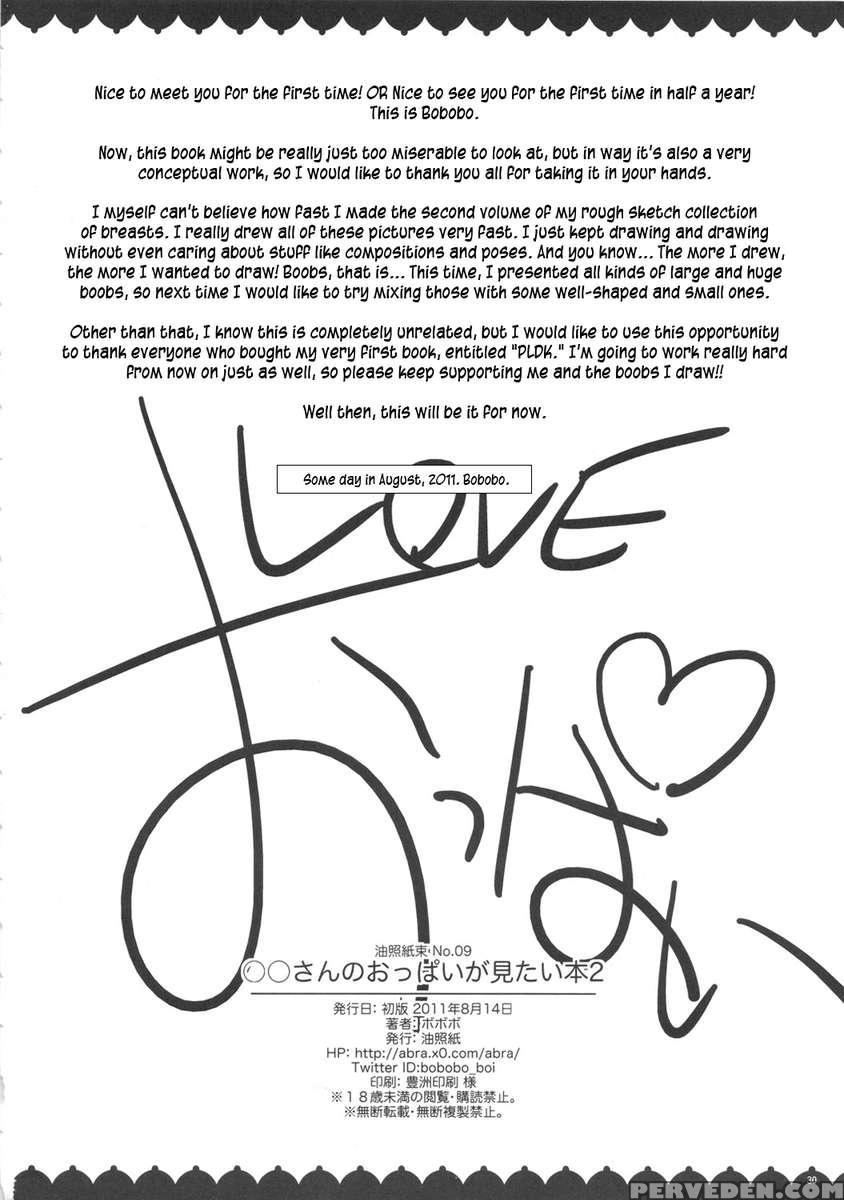 Nice to meet you for the first time! OR Nice to see you for the first time in half a year!
This is Bobobo.
Now, this book might be really just too miserable to look at, but in way it's also a very
conceptual work, so I would like to thank you all for taking it in your hands.
I myself can't believe how fast I made the second volume of my rough sketch collection
of breasts. I really drew all of these pictures very fast. I just kept drawing and drawing
without even caring about stuff like compositions and poses. And you know... The more I drew,
the more I wanted to draw! Boobs, that is... This time, I presented all kinds of large and huge
boobs, so next time I would like to try mixing those with some well-shaped and small ones.
Other than that, I know this is completely unrelated, but I would like to use this opportunity
to thank everyone who bought my very first book, entitled "PLDK." I'm going to work really hard
from now on just as well, so please keep supporting me and the boobs I draw!!
Well then, this will be it for now.
Some day in August, 2011. Bobobo.
LOVE
おっぱい
油照紙束 No.09
○○さんのおっぱいが見たい本2
発行日: 初版 2011年8月14日
著者:ボボボ
発行: 油照紙
HP: http://abra.x0.com/abra/
Twitter ID:bobobo_boi
印刷: 豊洲印刷 様
※18歳未満の閲覧・購読禁止。
※無断転載・無断複製禁止。
30
PERVEDEN.COM